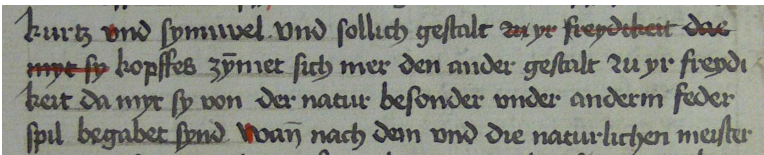 kurtz vnd synuwel vnd sollich gestalt zu yr freydikeit dae
myt sy kopffes zȳmet sich mer den ander gestalt zu yr freydi
keit da myt sy von der natur besonder vnder anderm feder
spil begabet synd wan̄ nach dem vnd die naturlichen meister